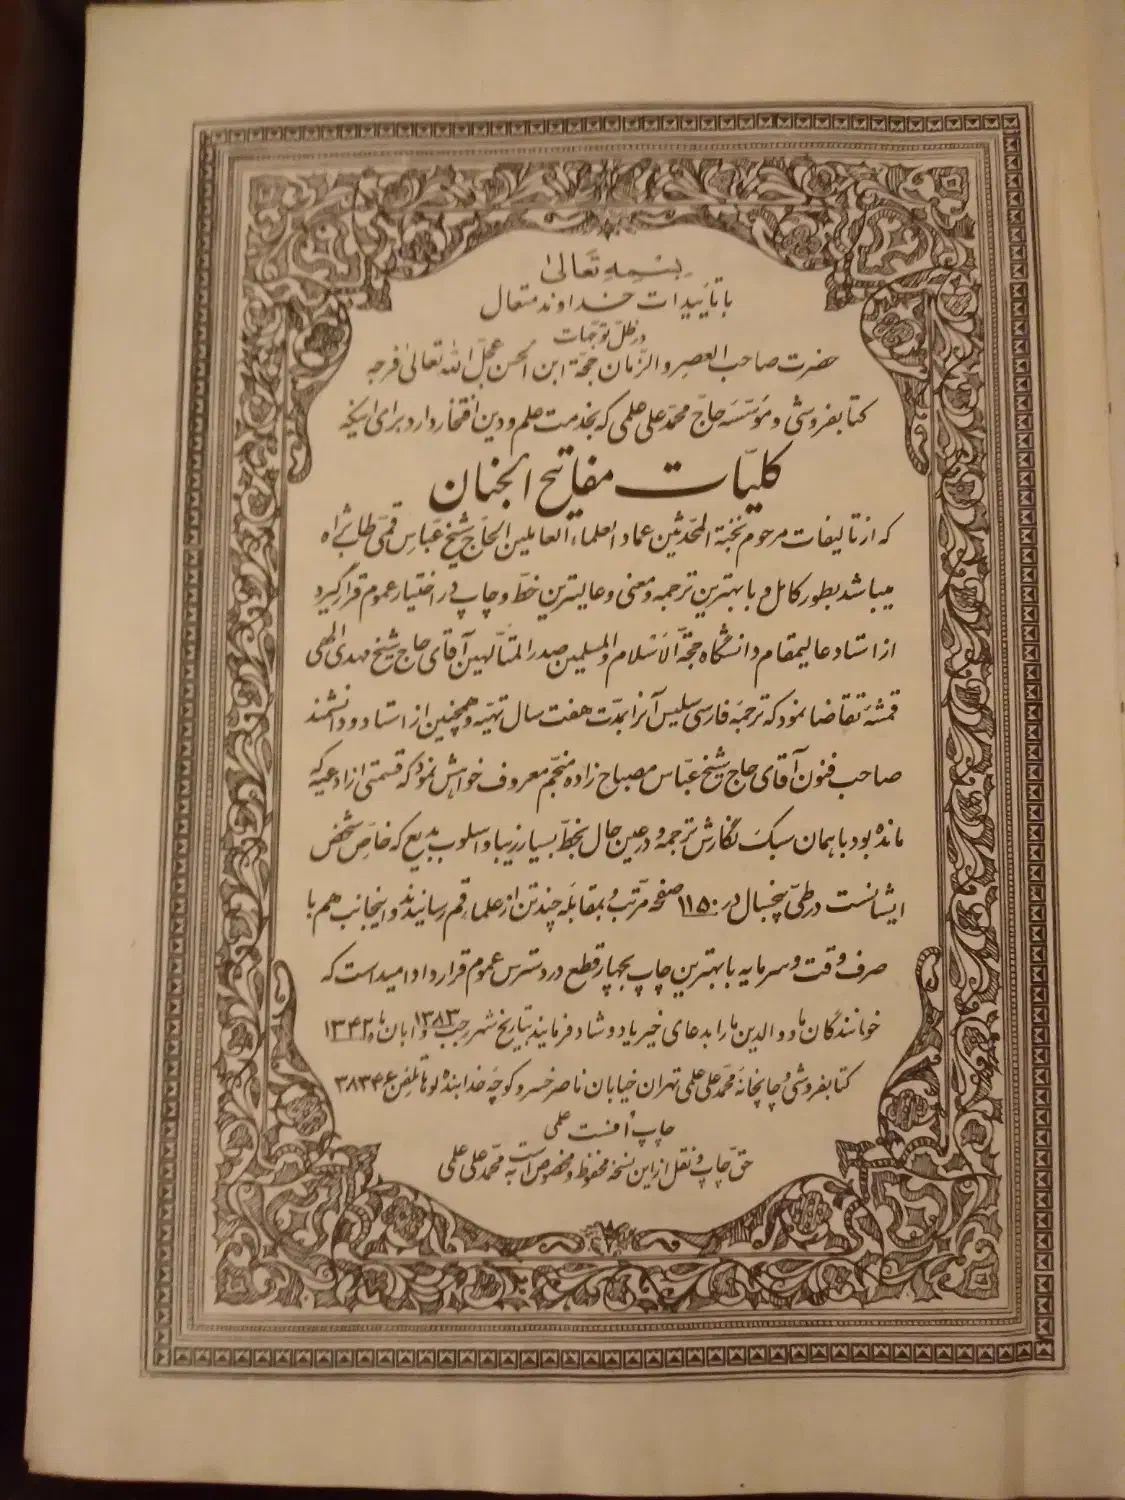 بِسْمِهِ تَعَالیٰ
با تأییدات خداوند متعال
در ظلّ توجّهات
حضرت صاحب العصر و الزّمان حجّة ابن الحسن عجّل اللّٰه تعالیٰ فرجه
کتابفروشی و مؤسّسه حاجّ محمّد علی علمی که بخدمت علم و دین افتخار دارد برای اینکه
کلیّات مفاتیح الجنان
که از تألیفات مرحوم نخبة المحدّثین عماد العلماء العاملین الحاجّ شیخ عبّاس قمّی طاب ثراه
میباشد بطور کامل و با بهترین ترجمه و معنی و عالیترین خطّ و چاپ در اختیار عموم قرار گیرد
از استاد عالیمقام دانشگاه حجّة الاسلام والمسلمین صدر المتألّهین آقای حاج شیخ مهدی الهی
قمشهٔ تقاضا نمود که ترجمهٔ فارسی سلیس آنرا بمدّت هفت سال تهیّه و همچنین از استاد و دانشمند
صاحب فنون آقای حاج شیخ عبّاس مصباح زاده منجّم معروف خواهش نمود که قسمتی از ادعیه که
مانده بود با همان سبک نگارش ترجمه و در عین حال بخطّ بسیار زیبا و اسلوب بدیع که خاصّ شخص
ایشانست در طیّ پنجسال در ۱۱۵۰ صفحه مرتّب و بمقابلهٔ چند تن از علماء قم رسانیدند و اینجانب هم با
صرف وقت و سرمایه با بهترین چاپ بچهار قطع در دسترس عموم قرار داد امید است که
خوانندگان ما و والدین ما را بدعای خیر یاد و شاد فرمایند بتاریخ شهر رجب ۱۳۸۳ و آبان ماه ۱۳۴۲
کتابفروشی و چاپخانهٔ محمّد علی علمی تهران خیابان ناصر خسرو کوچه خدابنده لوها تلفن ۳۸۳۴۶
چاپ اُفست علمی
حقّ چاپ و نقل از این نسخه محفوظ و مخصوص است به محمّد علی علمی